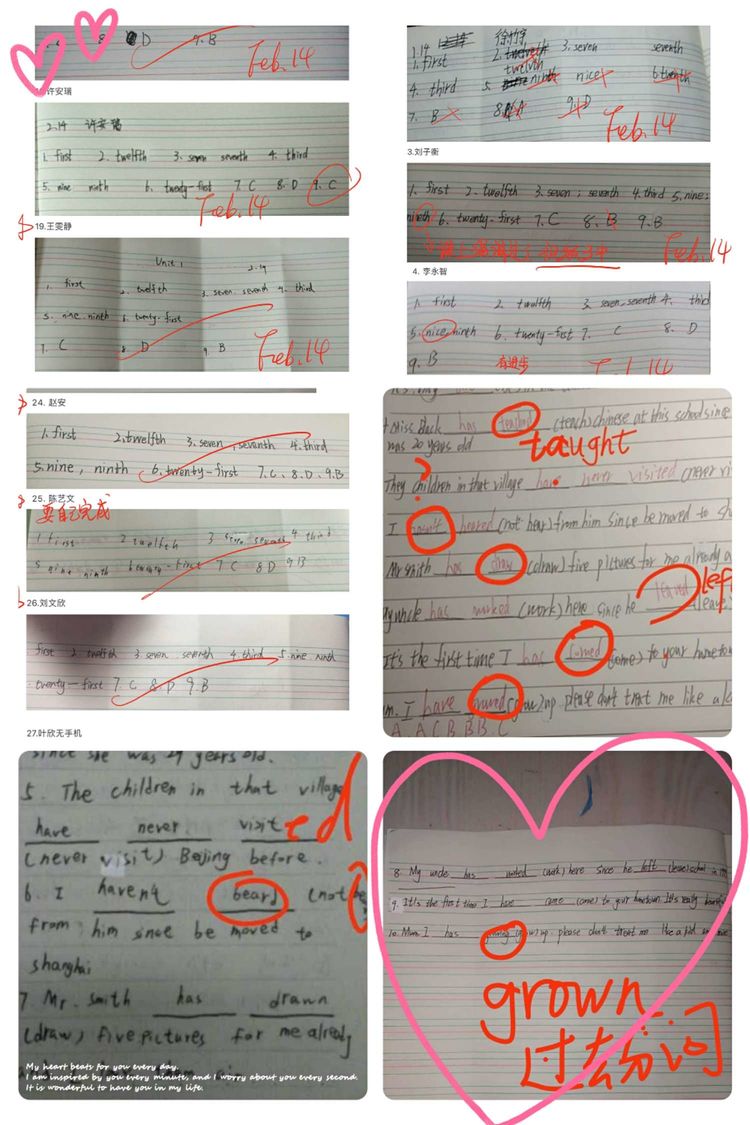 8. D 9. B
Feb.14
许安瑞
2.14 许安瑞
1. first 2. twelfth 3. seven seventh 4. third
5. nine ninth 6. twenty-first 7. C 8. D 9. C
Feb.14
19.王雯静
Unit 1
2.14
1. first 2. twelfth 3. seven. seventh 4. third
5. nine. ninth 6. twenty-first
7. C 8. D 9. B
Feb.14
24. 赵安
1. first 2. twelfth 3. seven, seventh 4. third
5. nine, ninth 6. twenty-first 7. C、8. D、9. B
25. 陈艺文
要自己完成
1 first 2 twelfth 3 seven seventh 4 third
5 nine ninth 7 C 8 D 9 B
26.刘文欣
first 2 twelfth 3. seven seventh 4. third 5. nine ninth
twenty-first 7. C 8. D 9. B
27.叶欣无手机
1.14
1. first 2. twelvth 3. seven seventh
twelvth
4. third 5. ninth nice 6. twenth
7. B 8. A 9. D
Feb.14
3.刘子衡
1. first 2. twelfth 3. seven; seventh 4. third 5. nine;
nineth 6. twenty-first 7. C 8. B 9. B
Feb.14
4. 李永智
1. first 2. twelfth 3. seven, seventh 4. third
5. nice, ninth 6. twenty-fist 7. C 8. D
9. B 有进步
Miss Black has teached (teach) chinese at this school since
was 20 years old
taught
?
They children in that village have never visited (never vi
I hasn't heared (not hear) from him since be moved to sh
Mr smith has draw (draw) five pictures for me already a
My uncle has worked (work) here since he leaved (leave)
left
It's the first time I has comed (come) to your hometow
m. I have growed (grow) up please don't treat me like a
A A C B B B C
since she was 29 years old.
5. The children in that village
have never visit ed
(never visit) Beijing before.
6. I haven't beard (not be
from him since be moved to
shanghai
7. Mr. smith has drawn
(draw) five pictures for me already
My heart beats for you every day.
I am inspired by you every minute, and I worry about you every second.
It is wonderful to have you in my life.
8. My uncle has worked (work) here since he left (leave) school in
9. It's the first time I have come (come) to your hometown. It's really beautiful
10. Mum I has (grow) up. please don't treat me like a kid
grown
过去分词